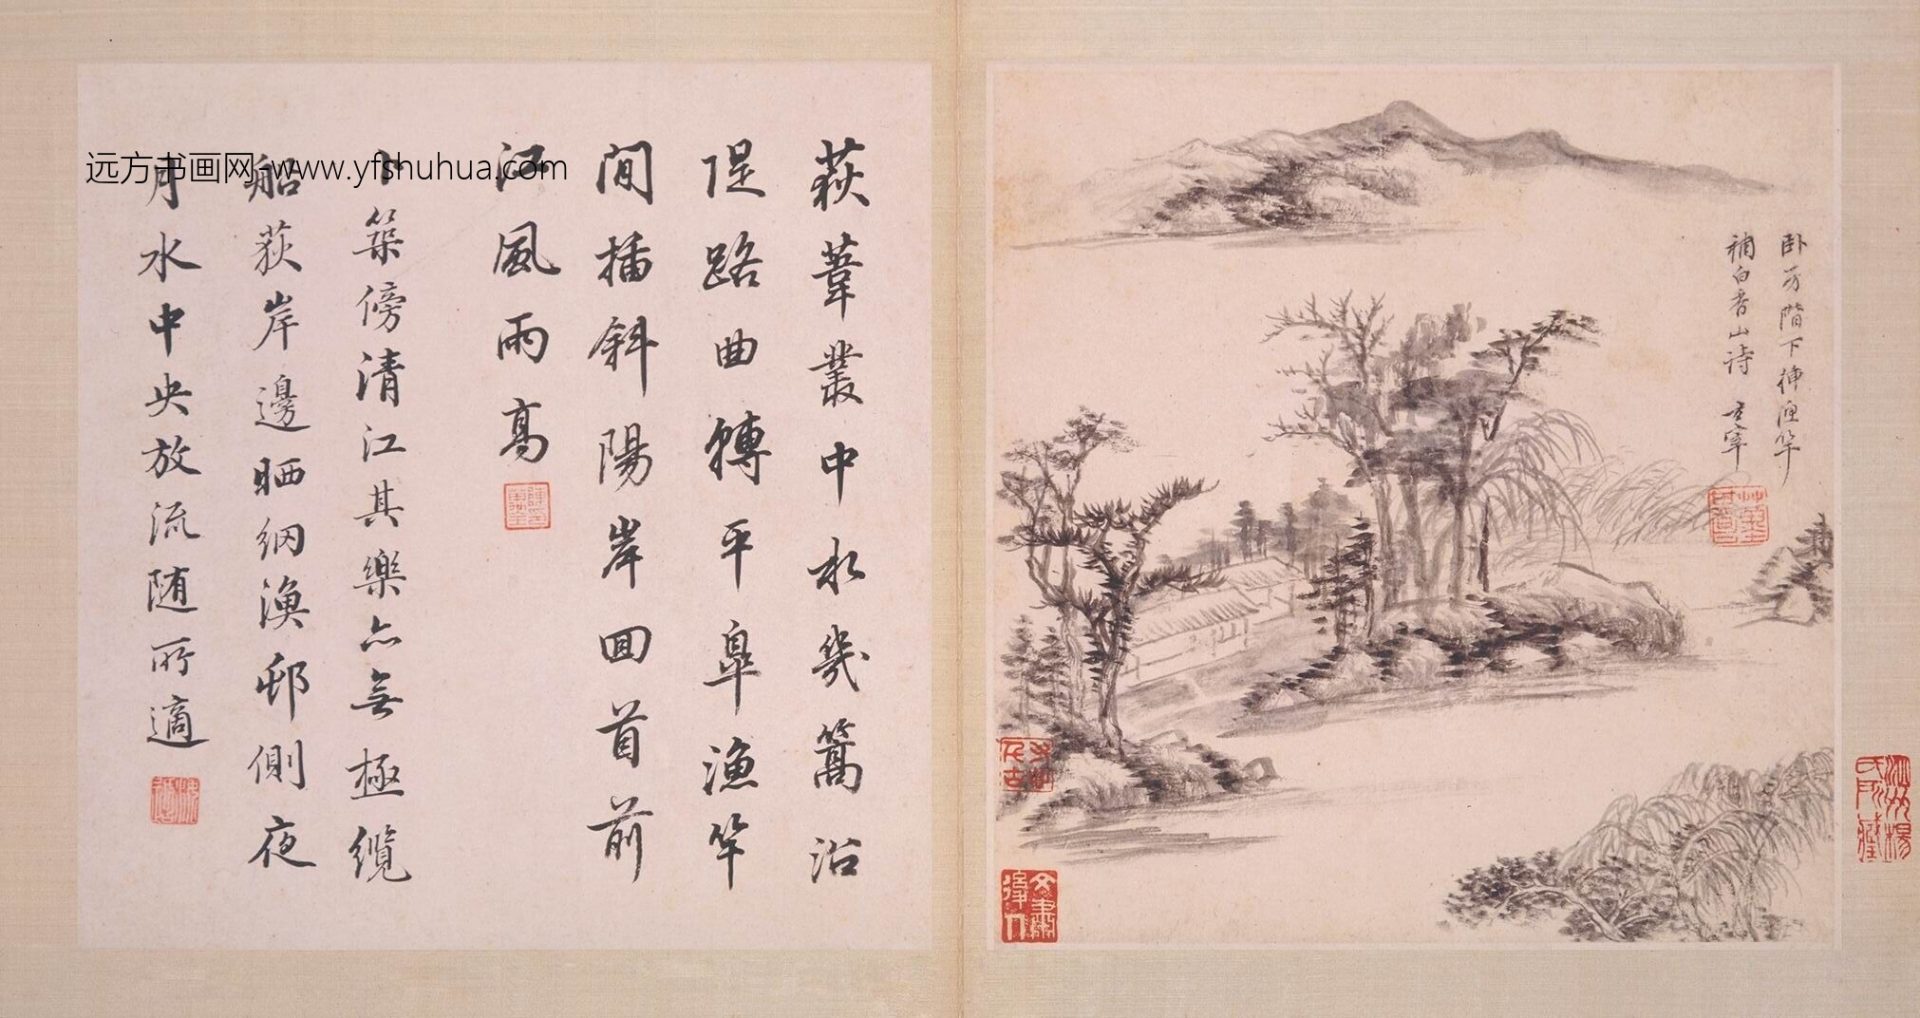 卧房階下插漁竿
補白香山詩 玄宰
荻葦叢中水幾篙沿
隄路曲轉平皋漁竿
閒插斜陽岸囬首前
江風雨高
卜築傍清江其樂亦無極纜
船荻岸邊晒網漁邨側夜
月水中央放流随所適
文肅後人
远方书画网-www.yfshuhua.com